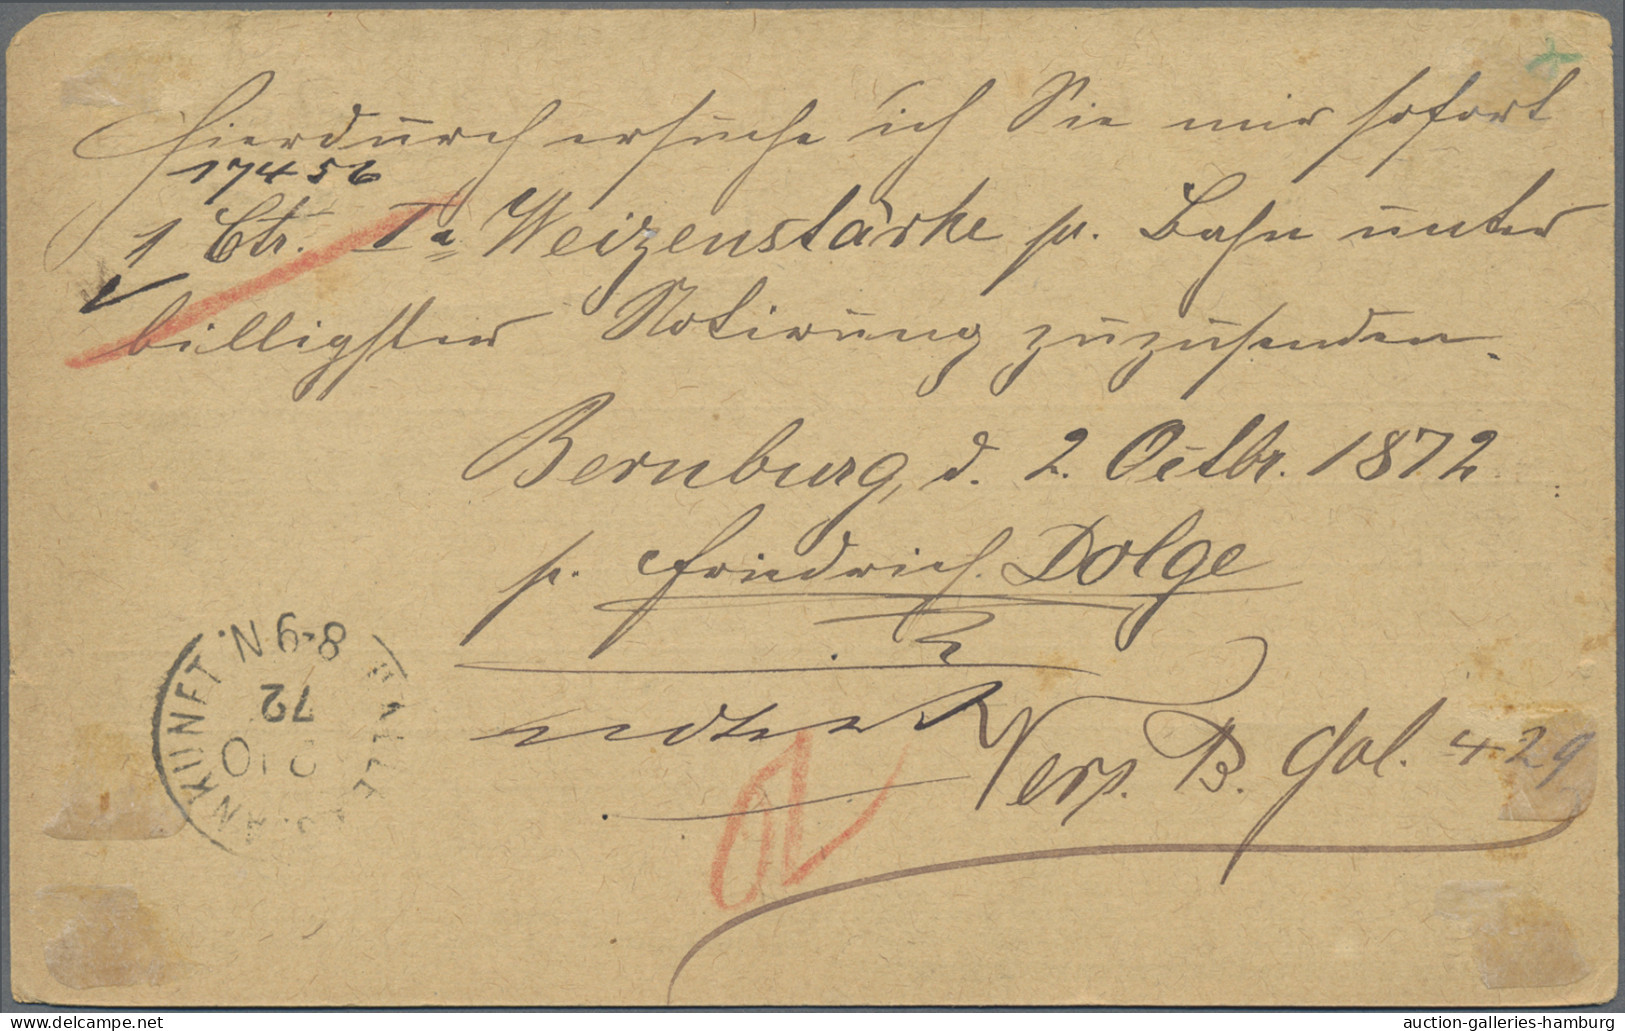 Hierdurch ersuche ich Sie mir sofort
17456
1 Ctr. Ia Weizenstärke pr. Bahn unter
billigster Notirung zuzusenden.
Bernburg, d. 2. Octbr. 1872
p. Friedrich Dolge
Vers. B. fol. 429
8-9 N.
72
ANKUNFT
auction-galleries-hamburg